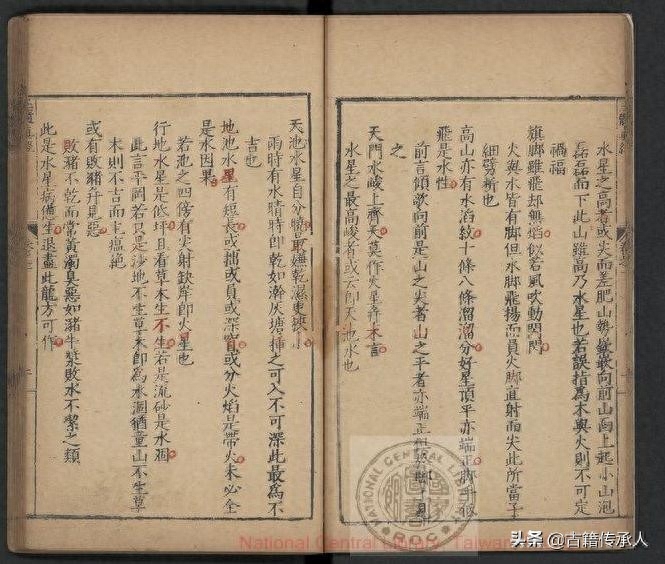 水星之高者或尖而差肥山勢欹向前山向上起小山泡
磊磊而下此山雖高乃水星也若誤指為木與火則不可定
禍福
旗脚雖飛却無焰似若風吹動閃閃
火與水皆有脚但水脚飛揚而員火脚直射而尖此所當子
細劈析也
高山亦有水滔紋十條八條溜溜分好星頂平亦端正脚手
飛是水性
前言傾欹向前是山之尖者山之平者亦端正但
之
天門水峻上齊天莫作火星弃不言
水星之最高峻者或云即天池水也
天池水星自分曉最嫌乾濕更狹小
雨時有水晴時即乾如瀚灰塘挿之可入不可深此最為不
吉也
地池水星有短長或拙或員或深窅或分火焰是帶火未必全
是水因果
若池之四傍有尖射缺岸即火星也
行地水星是低坪且看草木生不生若是流砂是水涸
此言平岡若只是沙地不生草木即為水涸猶童山不生草
木則不吉而主瘟絶
或有敗猪并見惡
敗猪不乾而常黃濁臭惡如潴牛槳敗水不潔之類
此是水星病德生退盡此龍方可作
National Central Library, Taiwan
頭条 @古籍传承人